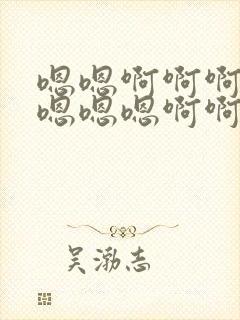 嗯嗯啊啊啊
嗯嗯嗯啊啊
吴渤志